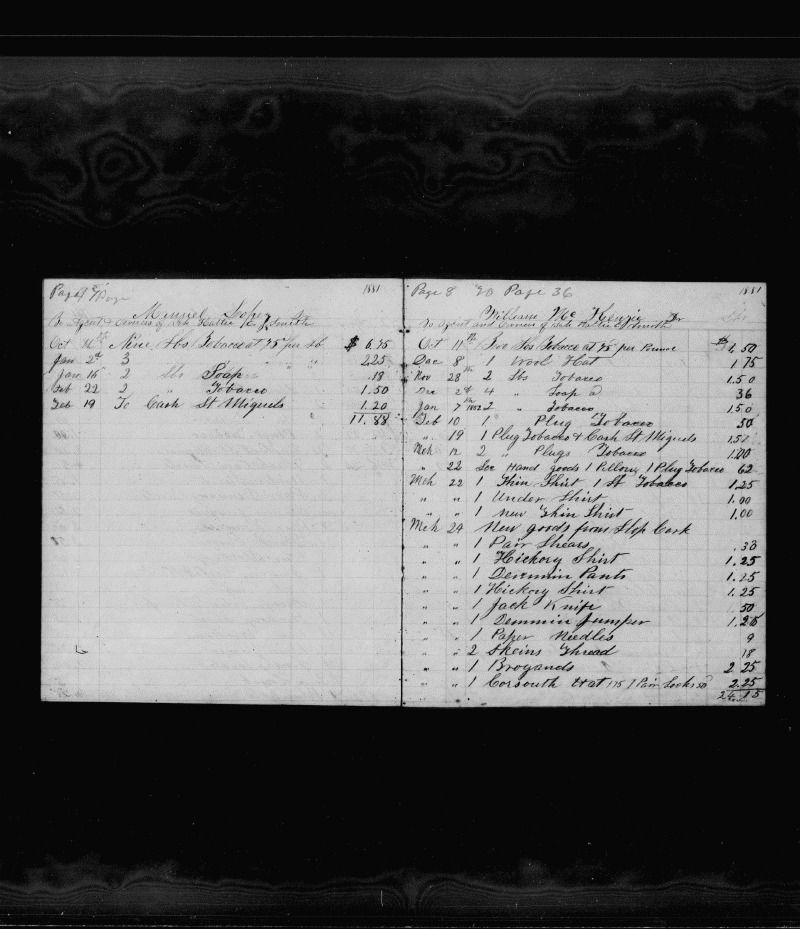 Page 1881
Manuel Lopez
To Agent & Owners of Sch Hattie E. Smith
Oct 11th Nine lbs Tobacco at 75 per lb $ 6.75
Jan 2d 3 " " " " 2.25
Jan 15 2 lbs Soap .18
Feb 22 2 " Tobacco 1.50
Feb 19 To Cash St Miguels 1.20
11.88
Page 8 To Page 36 1881
William Mc Kenzie Dr
To Agent and Owners of Sch Hattie E Smith
Oct 11th Two lbs Tobacco at 75 per Pound $1.50
Dec 8 1 Wool Hat 1 75
Nov 28th 2 lbs Tobacco 1.50
Dec 2d 4 " Soap 36
Jan 7th 1882 2 " Tobacco 1.50
Feb 10 1 Plug Tobacco 50
" 19 1 Plug Tobacco & Cash St Miguels 1.57
Mch 12 2 " Plugs Tobacco 1.00
" 22 Sec Hand goods 1 Pillow, 1 Plug Tobacco 62
Mch 22 1 Thin Shirt 1 lb Tobacco 1.25
" " 1 Under Shirt 1.00
" " 1 New Thin Shirt 1.00
Mch 24 New goods from Slop Cask
" " 1 Pair Shears .38
" " 1 Hickory Shirt 1.25
" " 1 Demmin Pants 1.25
" " 1 Hickory Shirt 1.25
" " 1 Jack Knife .50
" " 1 Demmin Jumper 1.25
" " 1 Paper Needles 9
" " 2 Skeins Thread 18
" " 1 Brogands 2 25
" " 1 Hat 1 75 1 Pair Socks 50 2.25